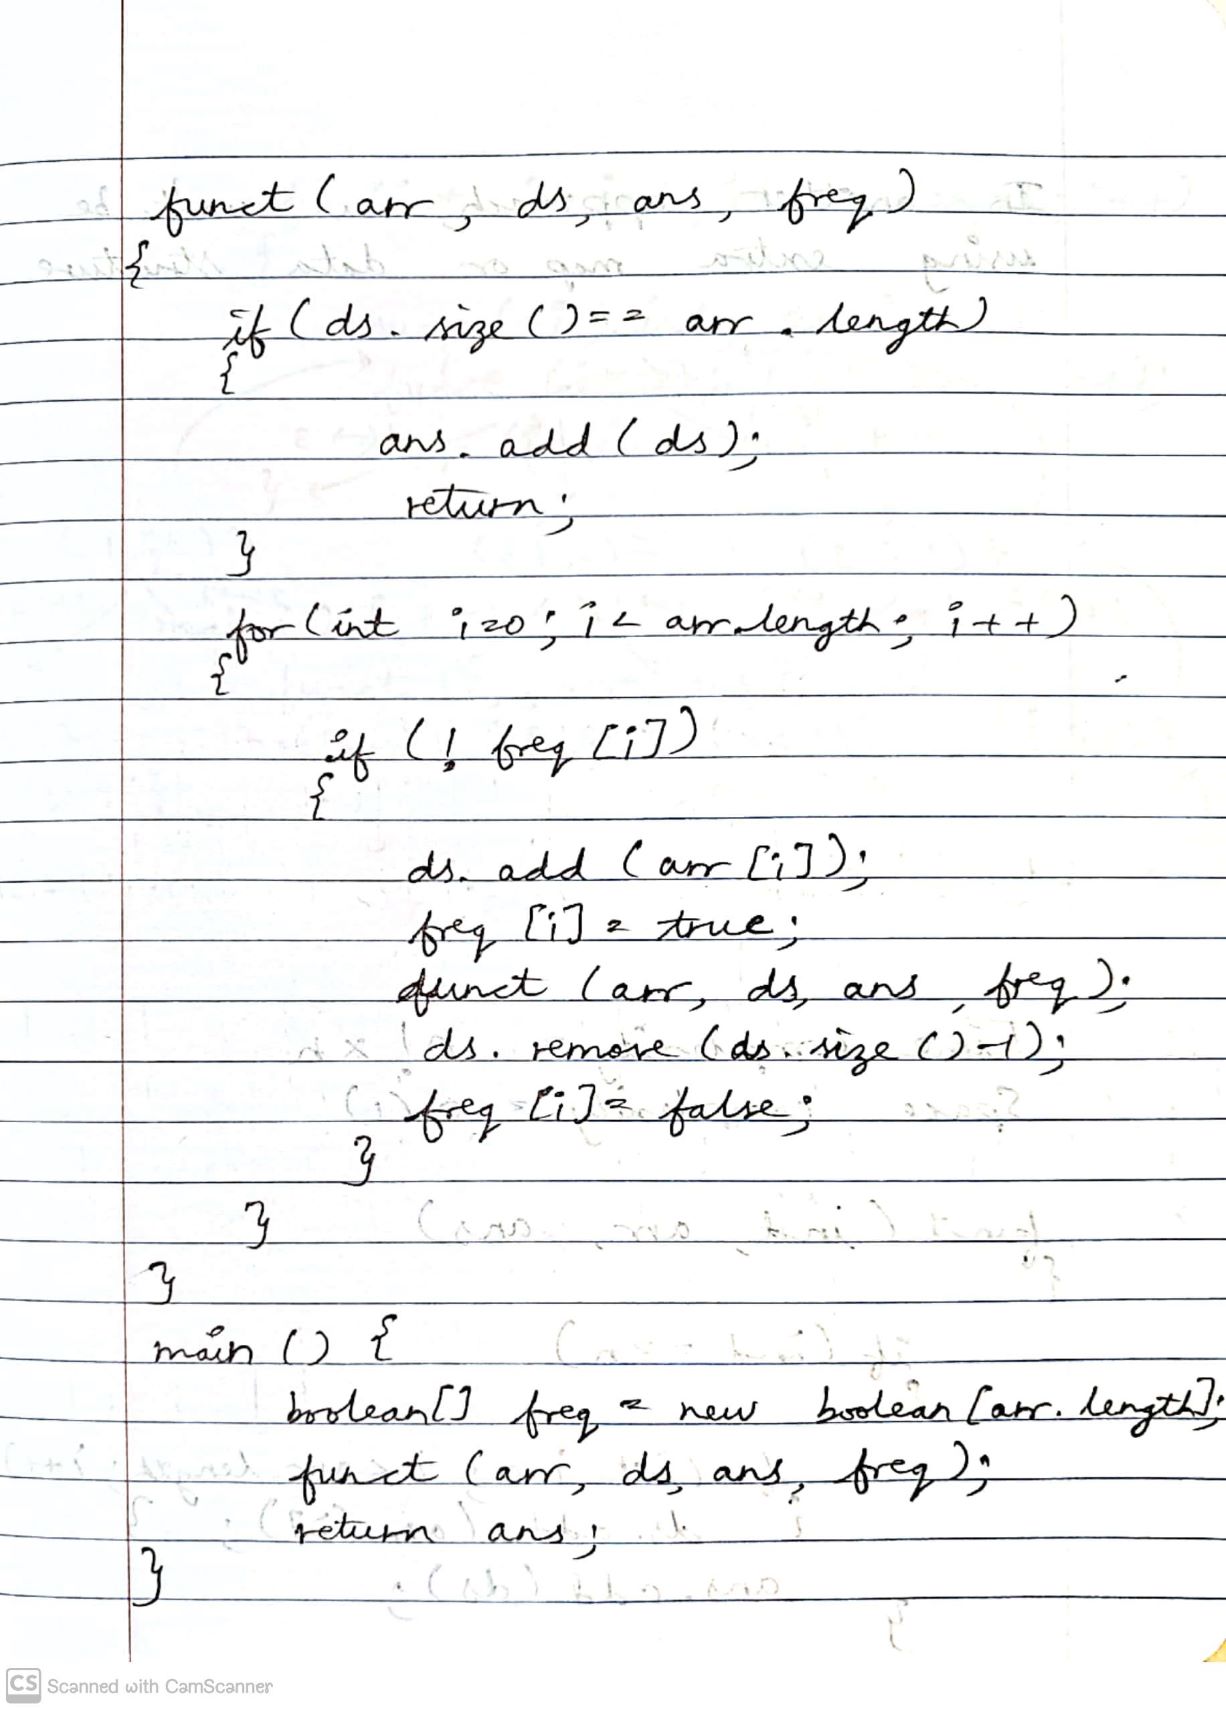 funct (arr, ds, ans, freq)
{
if (ds. size () == arr . length)
{
ans. add (ds);
return;
}
for (int i=0; i< arr.length; i++)
{
if (! freq [i])
{
ds. add (arr [i]);
freq [i] = true;
funct (arr, ds, ans, freq);
ds. remove (ds. size ()-1);
freq [i] = false;
}
}
}
main () {
boolean[] freq = new boolean [arr. length];
funct (arr, ds, ans, freq);
return ans;
}
CS Scanned with CamScanner